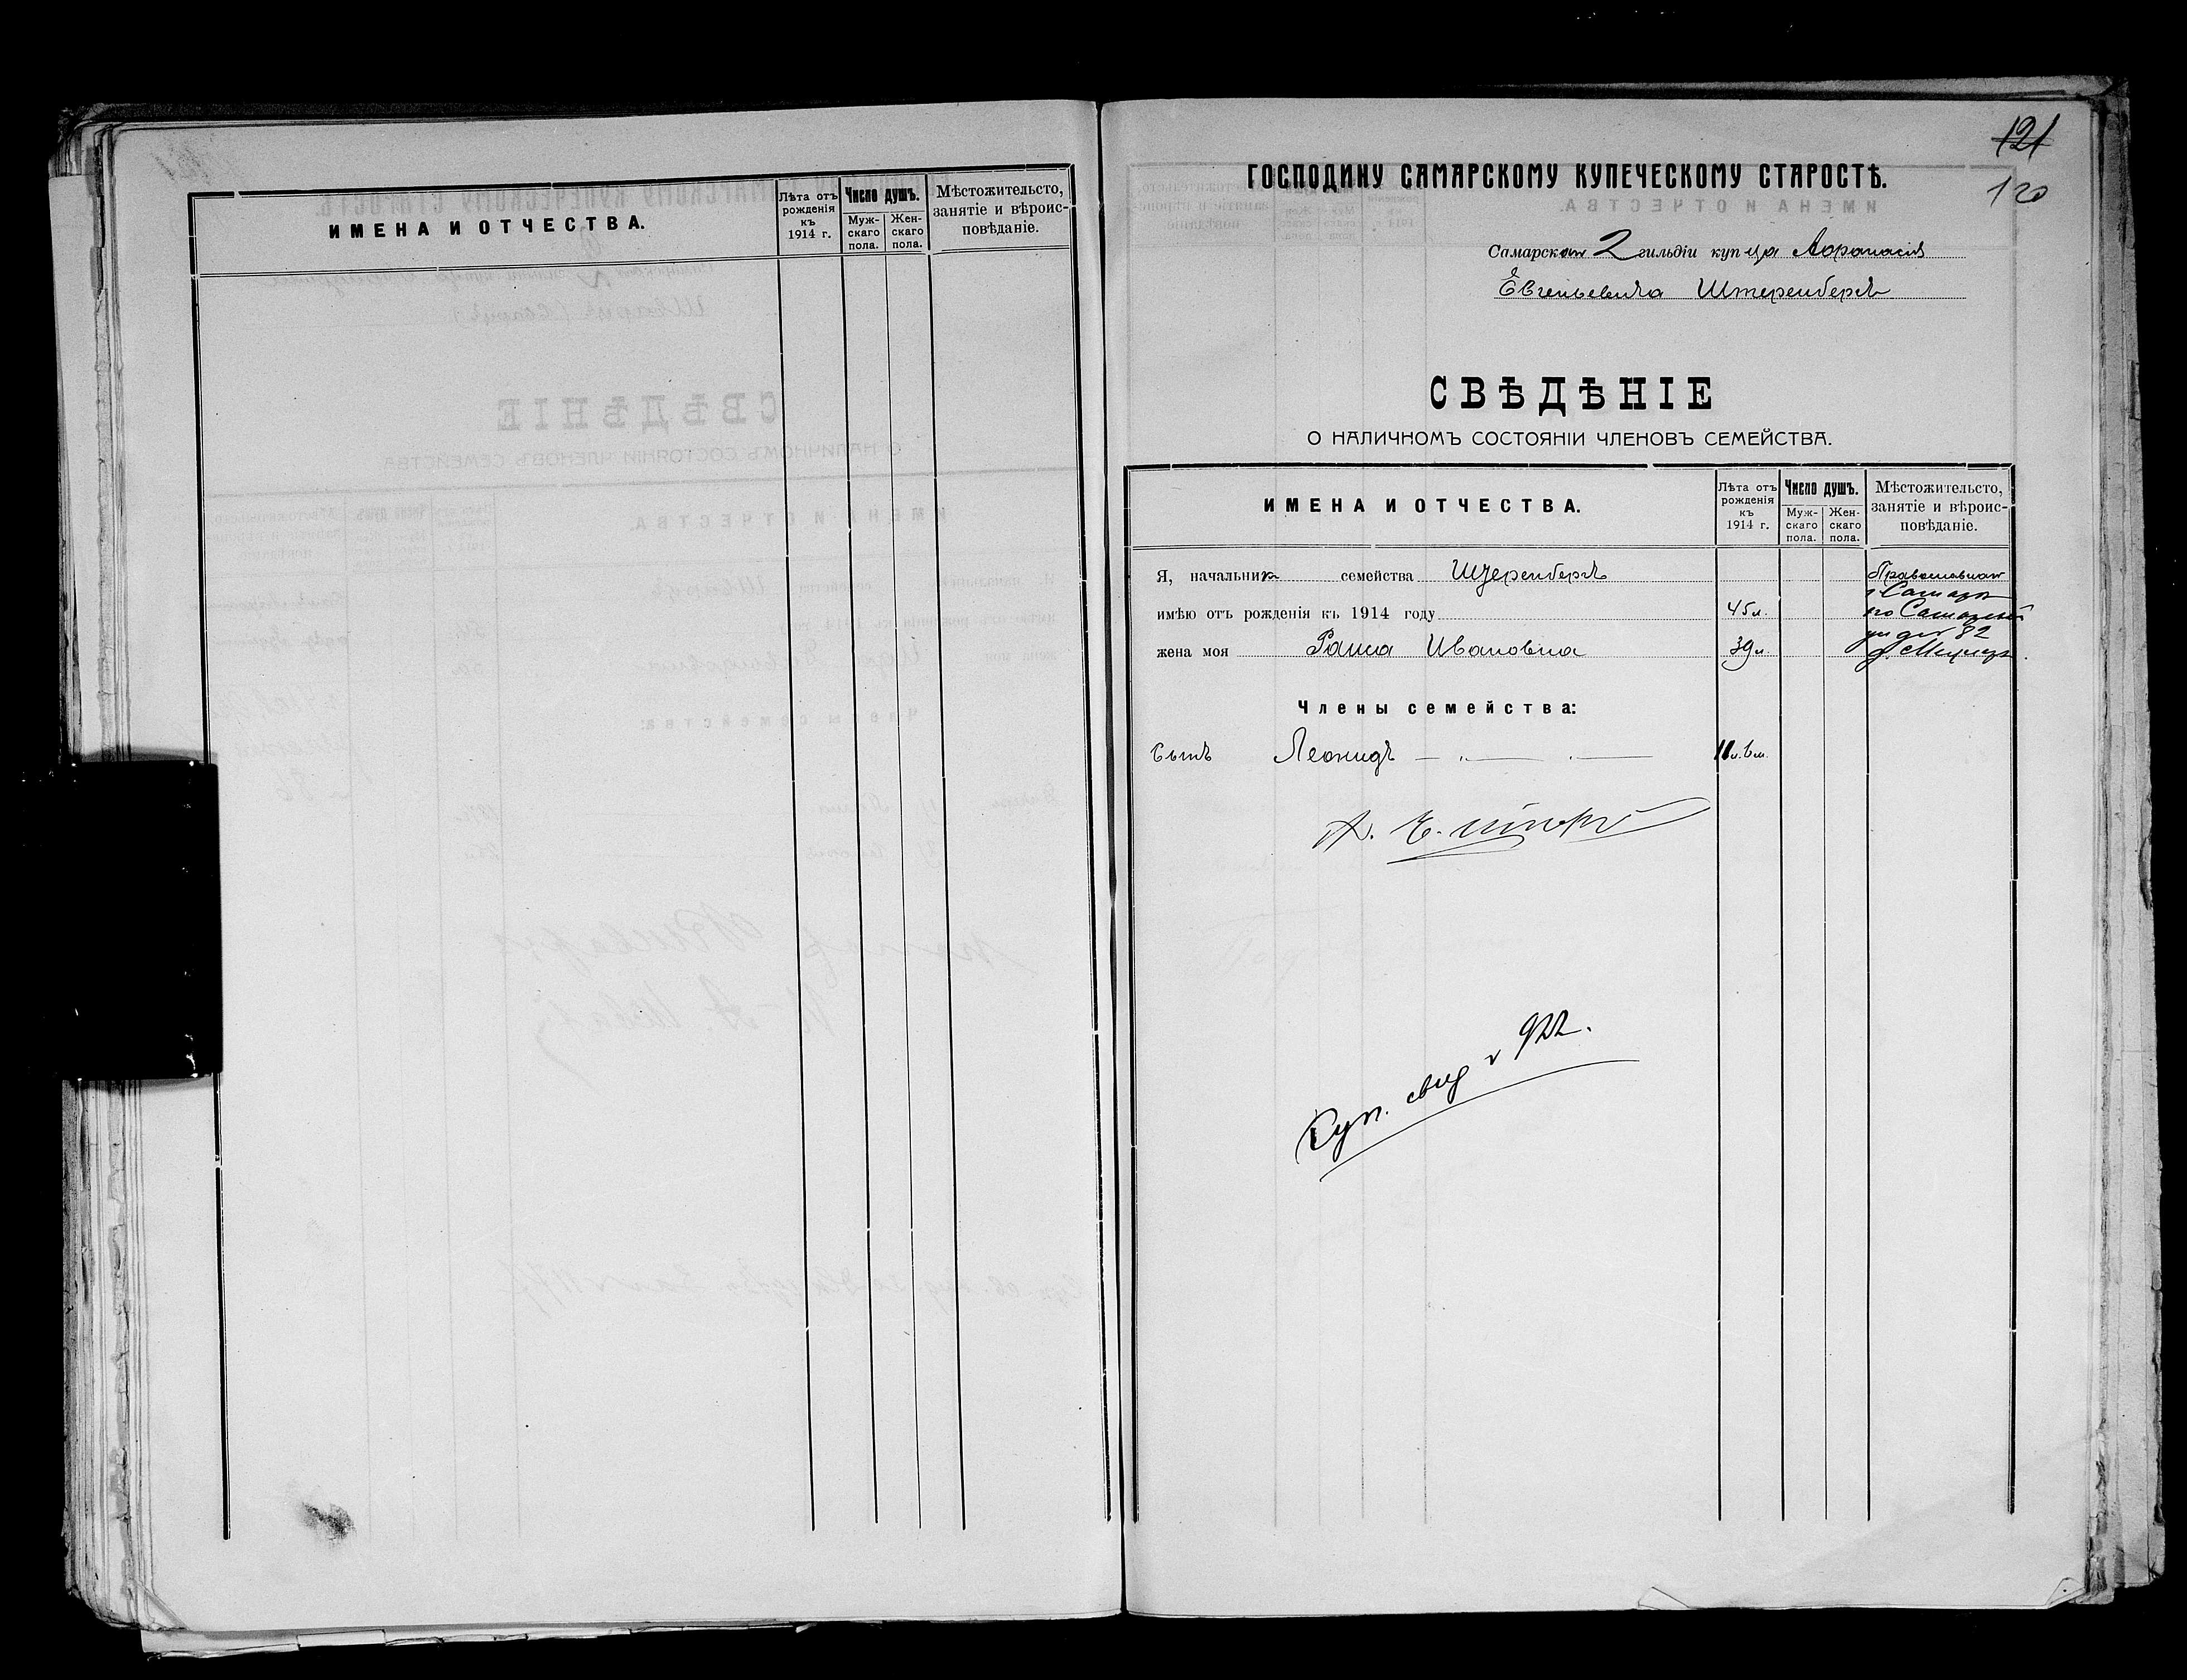 ИМЕНА И ОТЧЕСТВА.
Лѣта отъ рожденія къ 1914 г.
Число душъ.
Муж-скаго пола.
Жен-скаго пола.
Мѣстожительсто,
занятіе и вѣроис-
повѣданіе.
121
120
ГОСПОДИНУ САМАРСКОМУ КУПЕЧЕСКОМУ СТАРОСТѢ.
Самарск 2 гильдіи купца Афанасія
Евгеньевича Штеренбергъ
СВѢДѢНІЕ
О НАЛИЧНОМЪ СОСТОЯНІИ ЧЛЕНОВЪ СЕМЕЙСТВА.
ИМЕНА И ОТЧЕСТВА.
Лѣта отъ рожденія къ 1914 г.
Число душъ.
Муж-скаго пола.
Жен-скаго пола.
Мѣстожительсто,
занятіе и вѣроис-
повѣданіе.
Я, начальник семейства Штеренбергъ
имѣю отъ рожденія къ 1914 году 45 л.
жена моя Раиса Ивановна 39 л.
Православная
82
Члены семейства:
Сынъ Леонидъ 11 л. 6 м.
А. Е.
Куп. свид № 922.